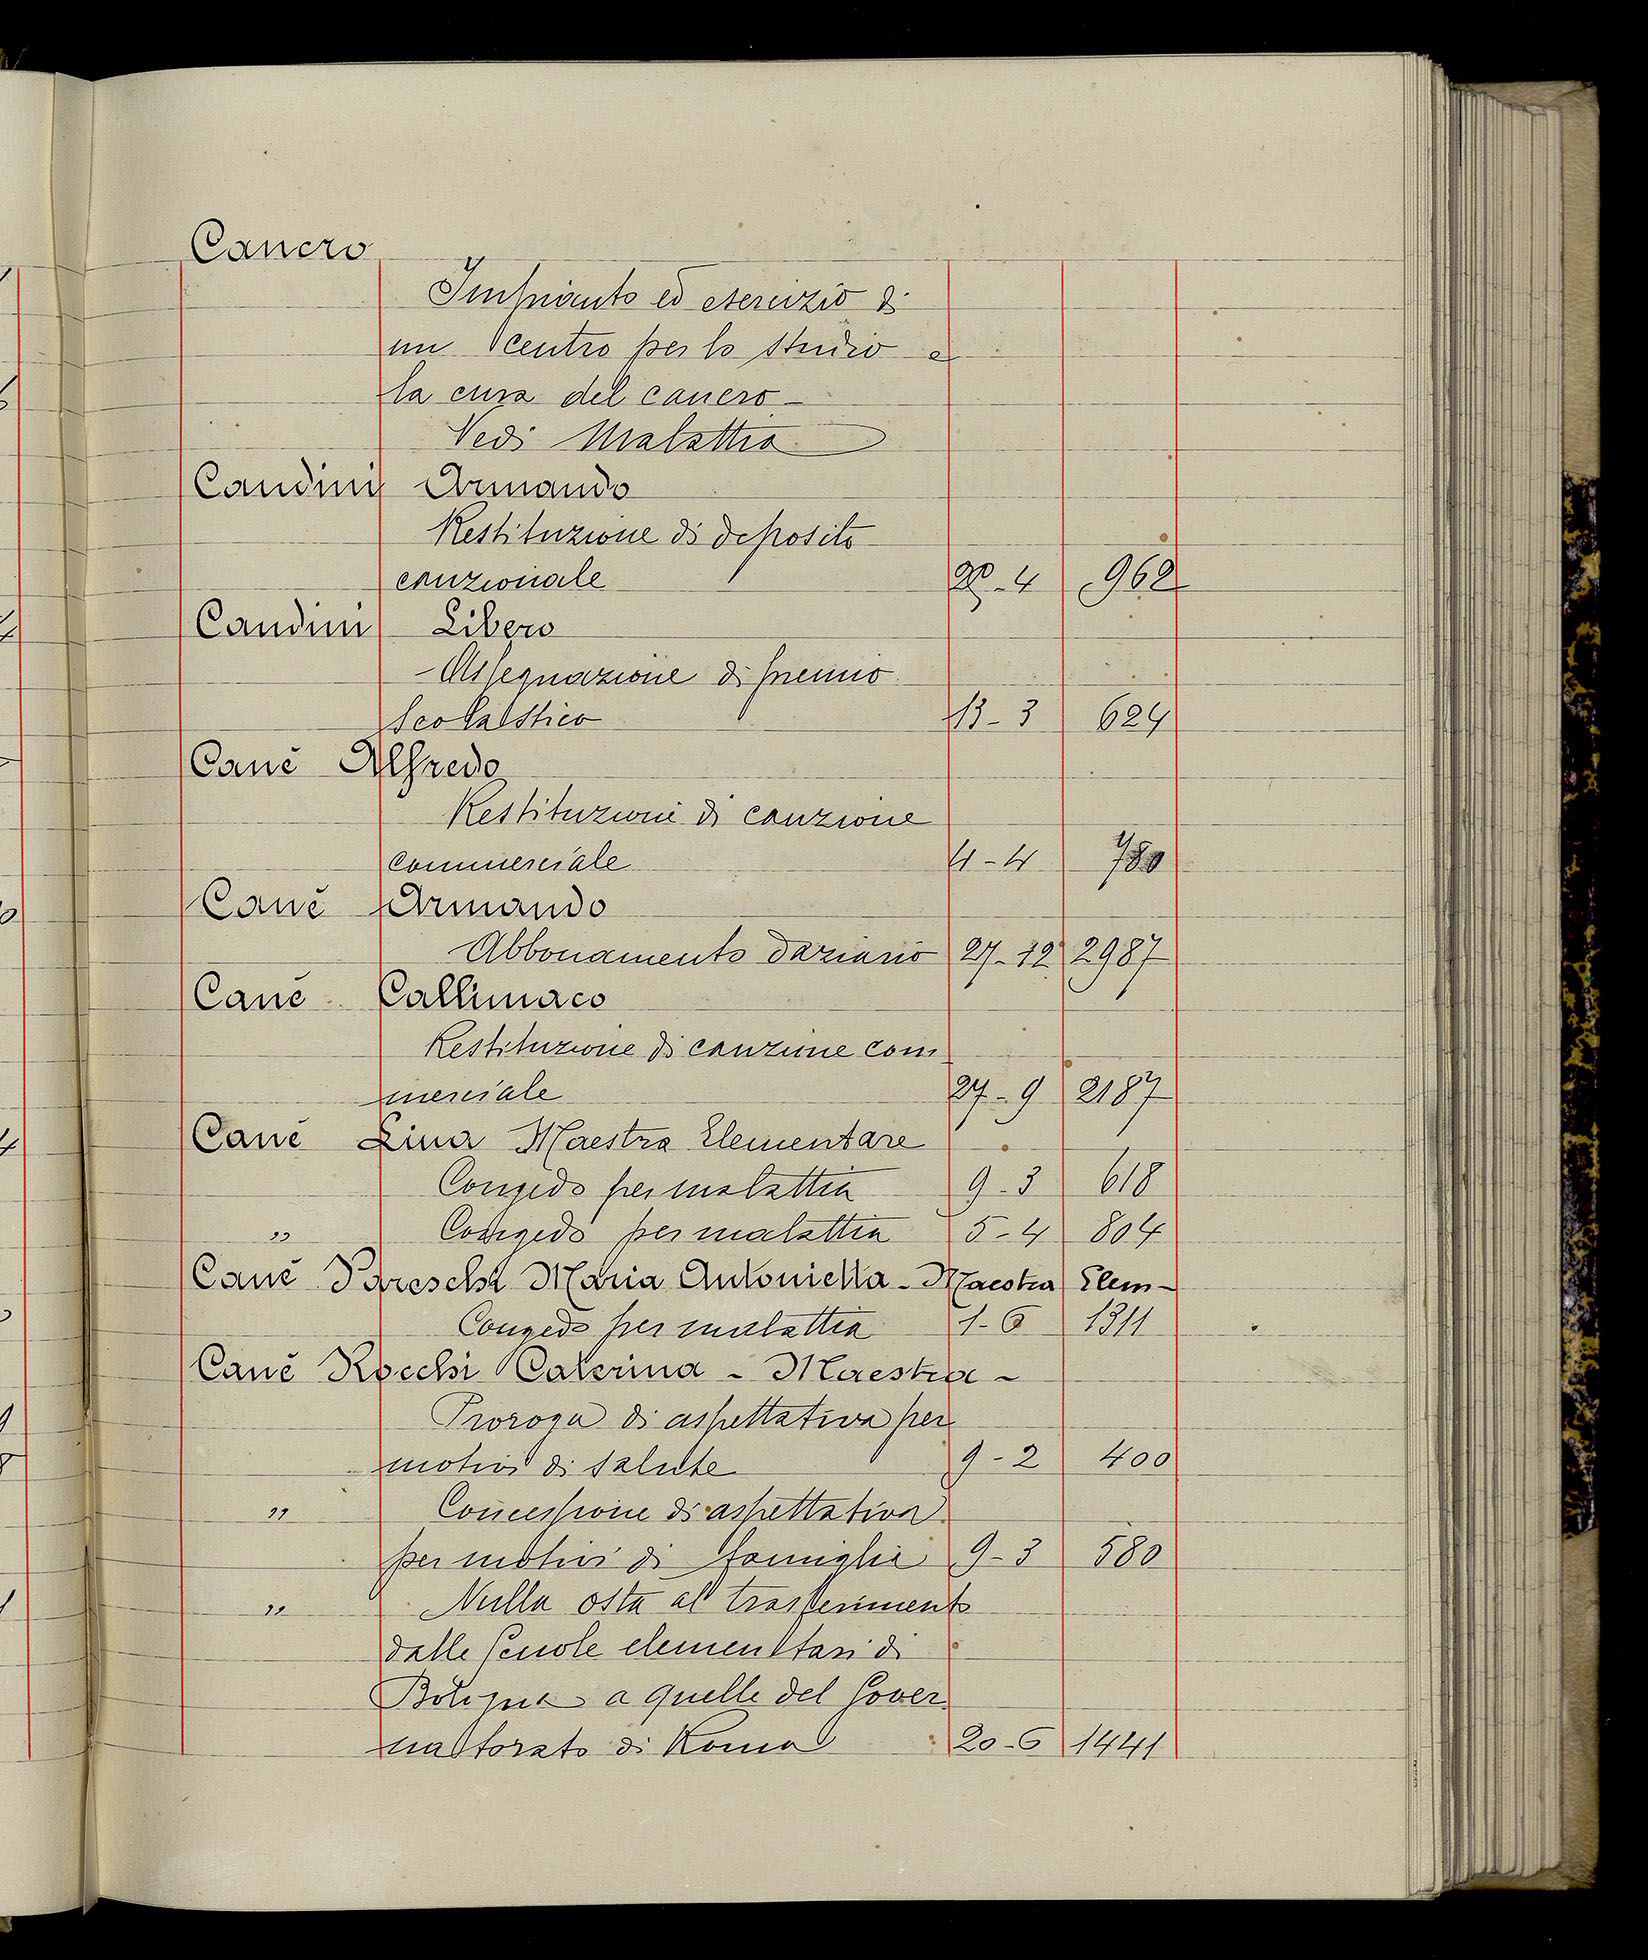 Cancro
Impianto ed esercizio di
un centro per lo studio e
la cura del cancro -
Vedi Malattia
Candini Armando
Restituzione di deposito
cauzionale - 4 962
Candini Libero
- Assegnazione di premio
scolastico 13 - 3 624
Canè Alfredo
Restituzione di cauzione
commerciale 4 - 4 780
Canè Armando
Abbonamento daziario 27 - 12 2987
Canè Callimaco
Restituzione di cauzione com
merciale 27 - 9 2187
Canè Lina Maestra Elementare
Congedo per malattia 9 - 3 618
" Congedo per malattia 5 - 4 804
Canè Pareschi Maria Antonietta - Maestra Elem -
Congedo per malattia 1 - 6 1311
Canè Rocchi Caterina - Maestra -
Proroga di aspettativa per
motivi di salute 9 - 2 400
" Concessione di aspettativa
per motivi di famiglia 9 - 3 580
" Nulla osta al trasferimento
dalle Scuole elementari di
Bologna a quelle del Gover
natorato di Roma 20 - 6 1441